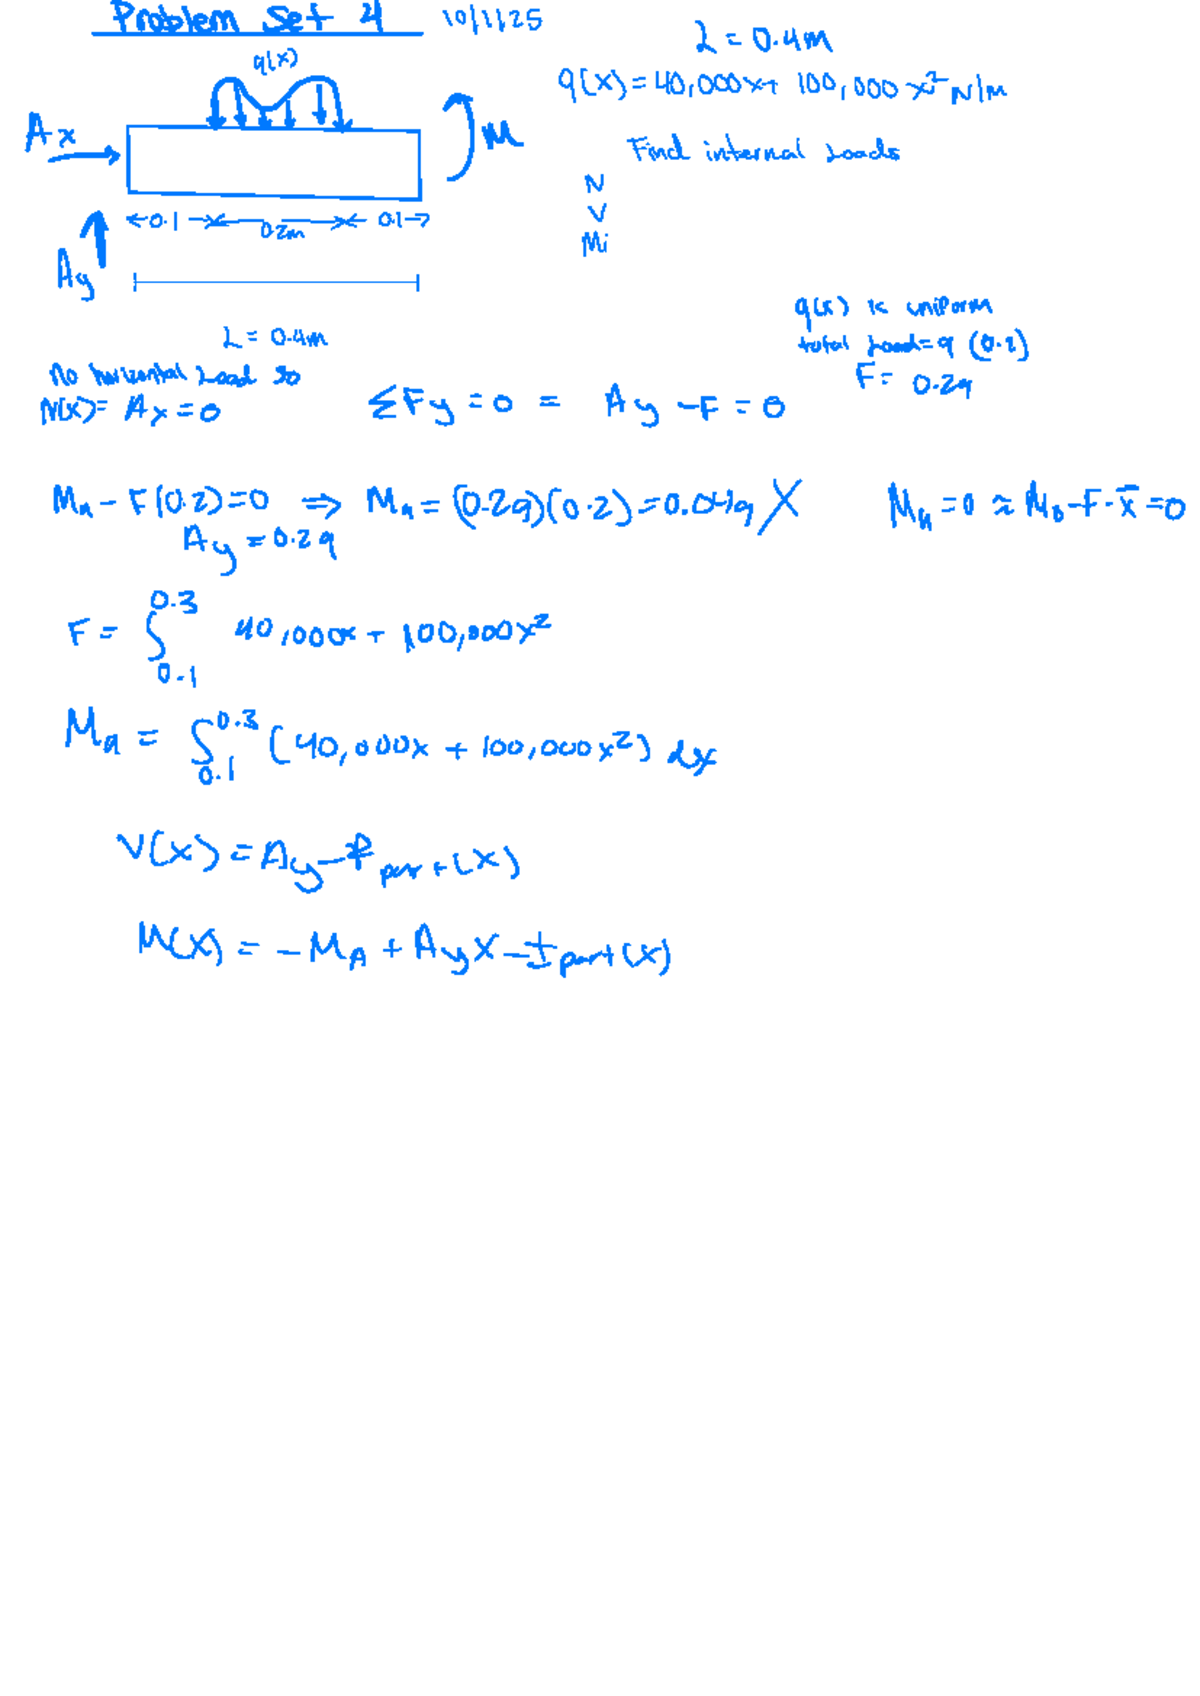 Problem Set 4 10/1/25
L = 0.4m
q(x)
q(x) = 40,000x + 100,000x² N/m
Ax
M
Find internal Loads
N
V
Mi
0.1 0.2m 0.1
Ay
L = 0.4m
q(x) is uniform
total Load = q (0.2)
F = 0.2q
No horizontal Load so
N(x) = Ax = 0
ΣFy = 0 = Ay - F = 0
Ma - F(0.2) = 0 ⇒ Ma = (0.2q)(0.2) = 0.04q X
Ma = 0 ≈ M₀ - F·x̄ = 0
Ay = 0.2q
F = ∫0.1^0.3 40,000x + 100,000x²
Ma = ∫0.1^0.3 (40,000x + 100,000x²) dx
V(x) = Ay - F part(x)
M(x) = -MA + Ayx - I part(x)